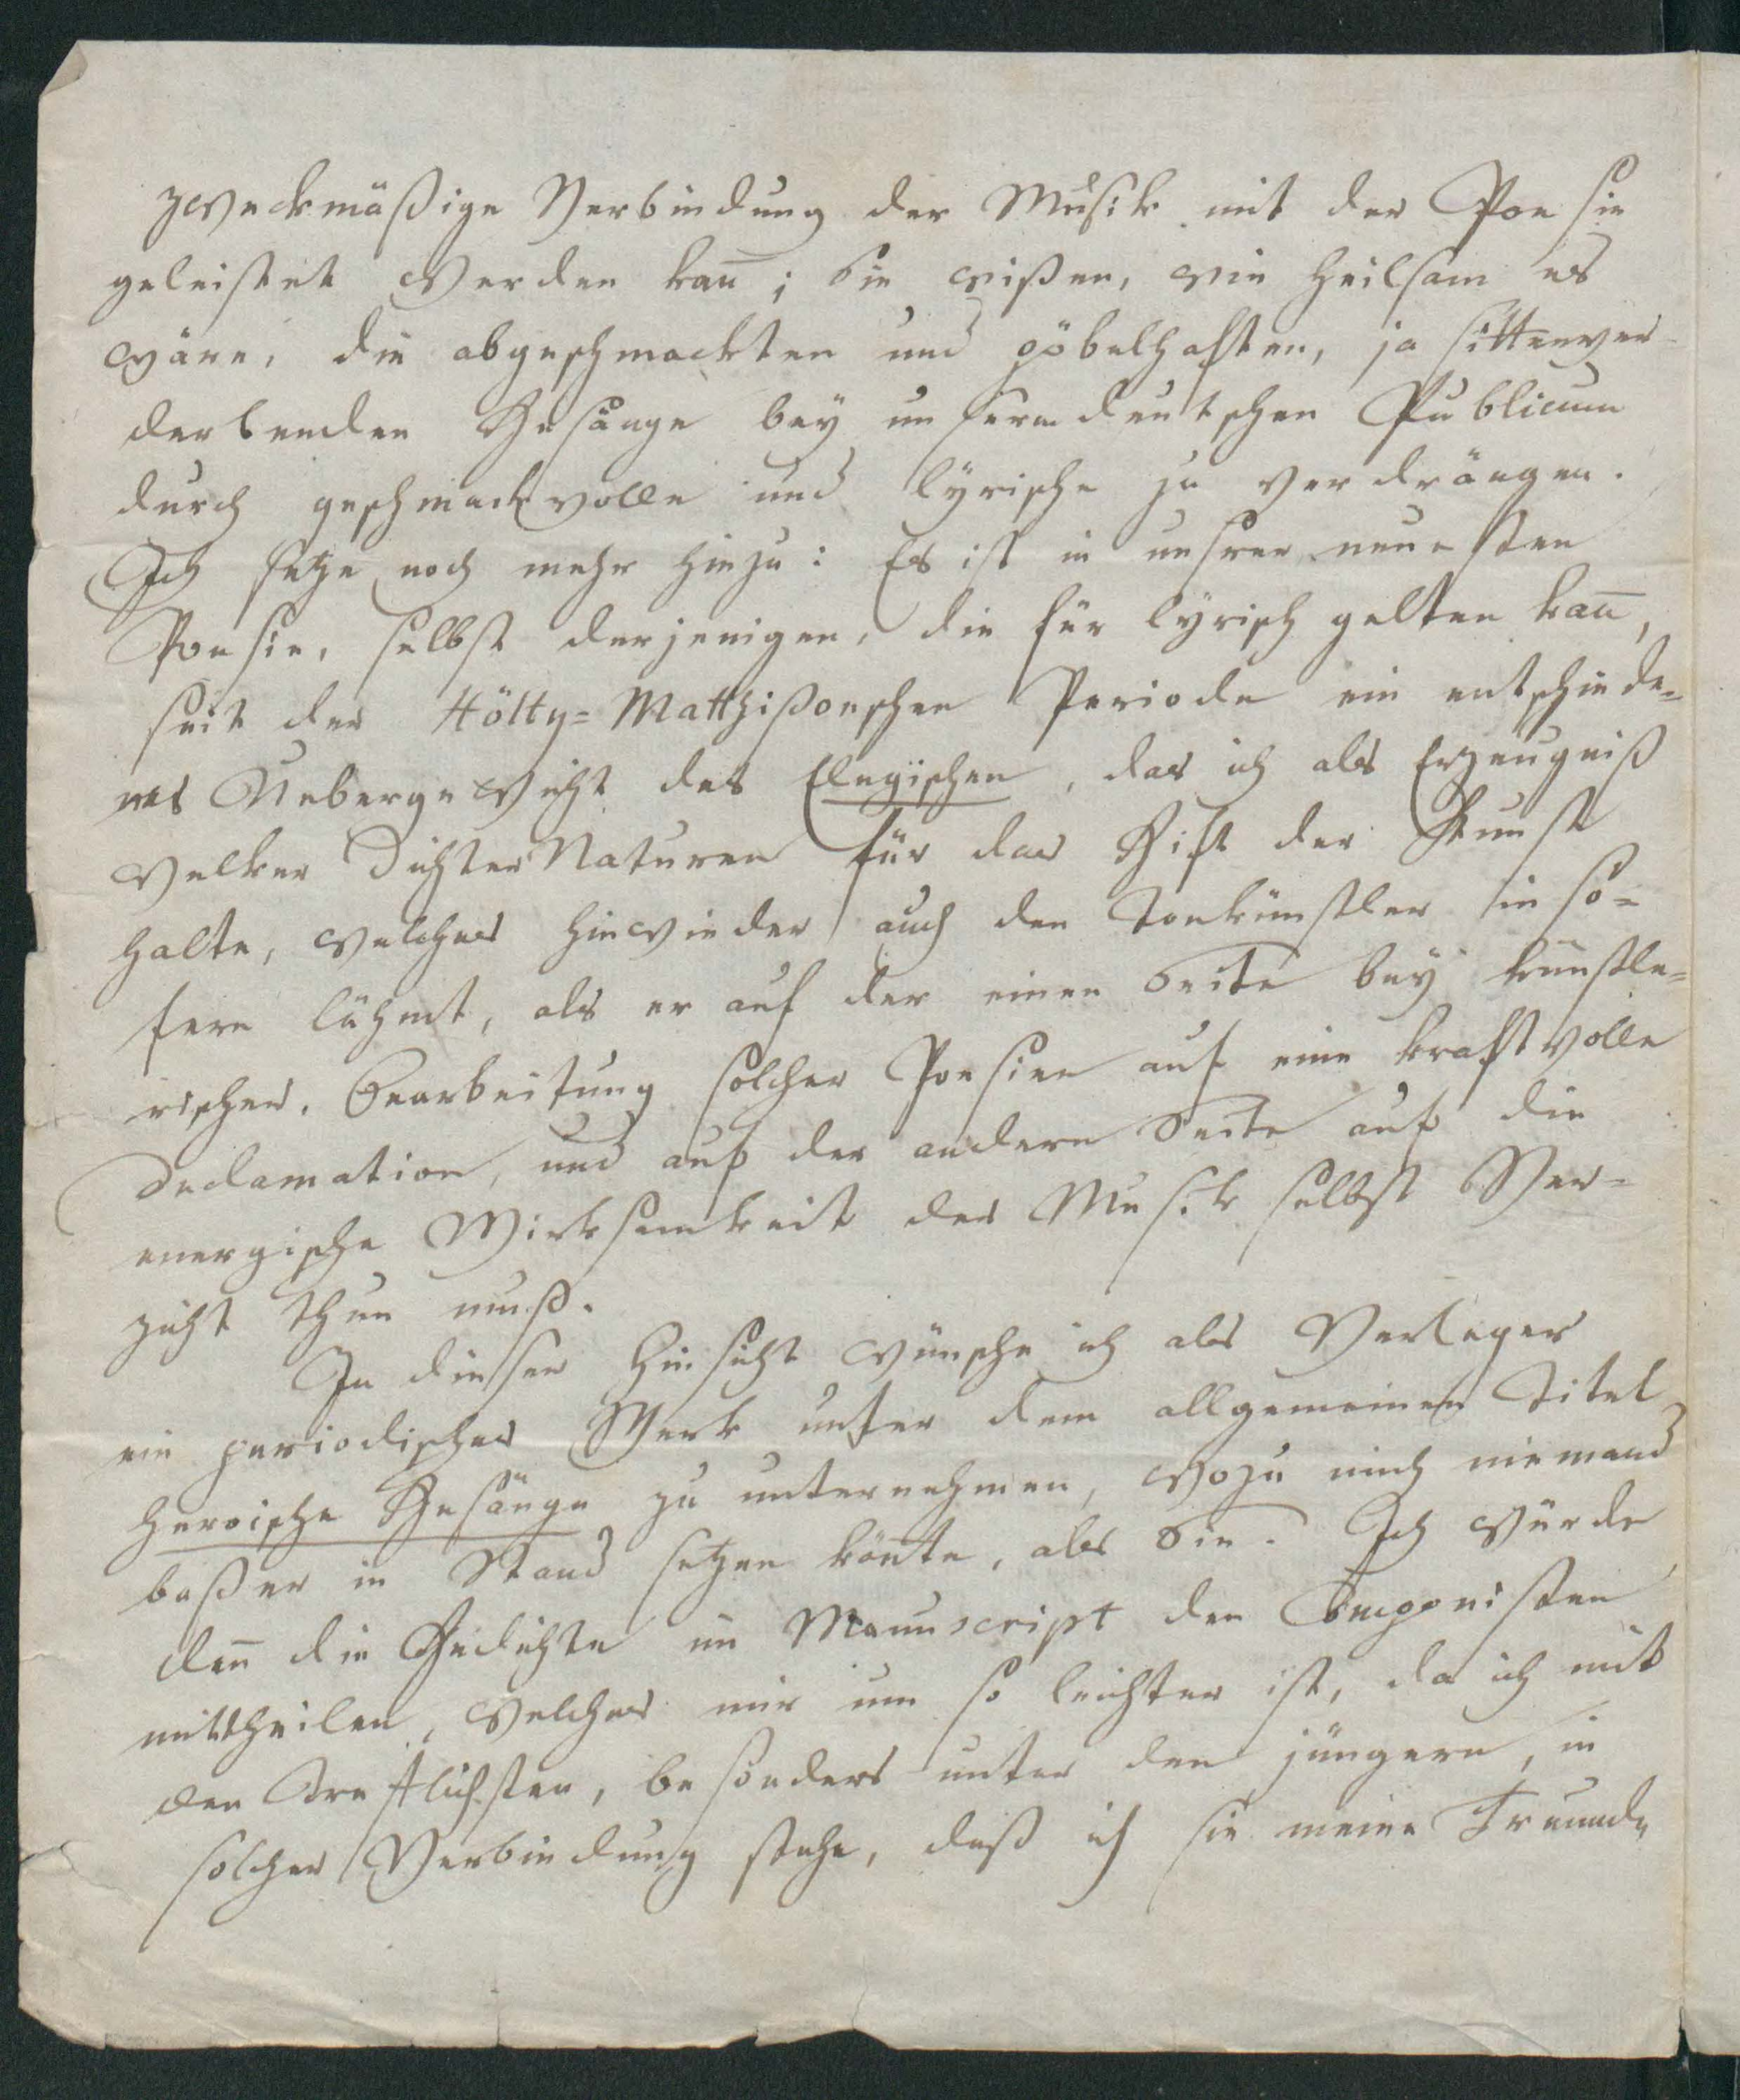 zweckmäßige Verbindung der Musik mit der Poesie
geleistet werden kan̄; Sie wißen, wie heilsam es
wäre, die abgeschmackten und pöbelhaften, ja sittenver-
derbenden Gesänge bey unserm deutschen Publicum
durch geschmackvolle und lyrische zu verdrängen.
Ich setze noch mehr hinzu: Es ist in unsrer neuesten
Poesie, selbst derjenigen, die für lyrisch gelten kan̄,
seit der Hölty=Matthißonschen Periode ein entschiede=
nes Uebergewicht des Elegischen, das ich als Erzeugniß
welker Dichter Naturen für das Gift der Kunst
halte, welches hinwieder auch den Tonkünstler in so=
fern lähmt, als er auf der einen Seite bey künstle=
rischer Bearbeitung solcher Poesien auf eine kraftvolle
Declamation, und auf der andern Seite auf die
energische Wirksamkeit der Musik selbst Ver=
zicht thun muß.
In dieser Hinsicht wünsche ich als Verleger
ein periodisches Werk unter dem allgemeinen Titel
heroische Gesänge zu unternehmen, wozu mich niemand
beßer in Stand setzen kön̄te, als Sie. Ich würde
den̄ die Gedichte im Manuscript den Componisten
mittheilen, welches mir um so leichter ist, da ich mit
den Treflichsten, besonders unter den jüngern, in
solcher Verbindung stehe, daß ich sie meine Freunde